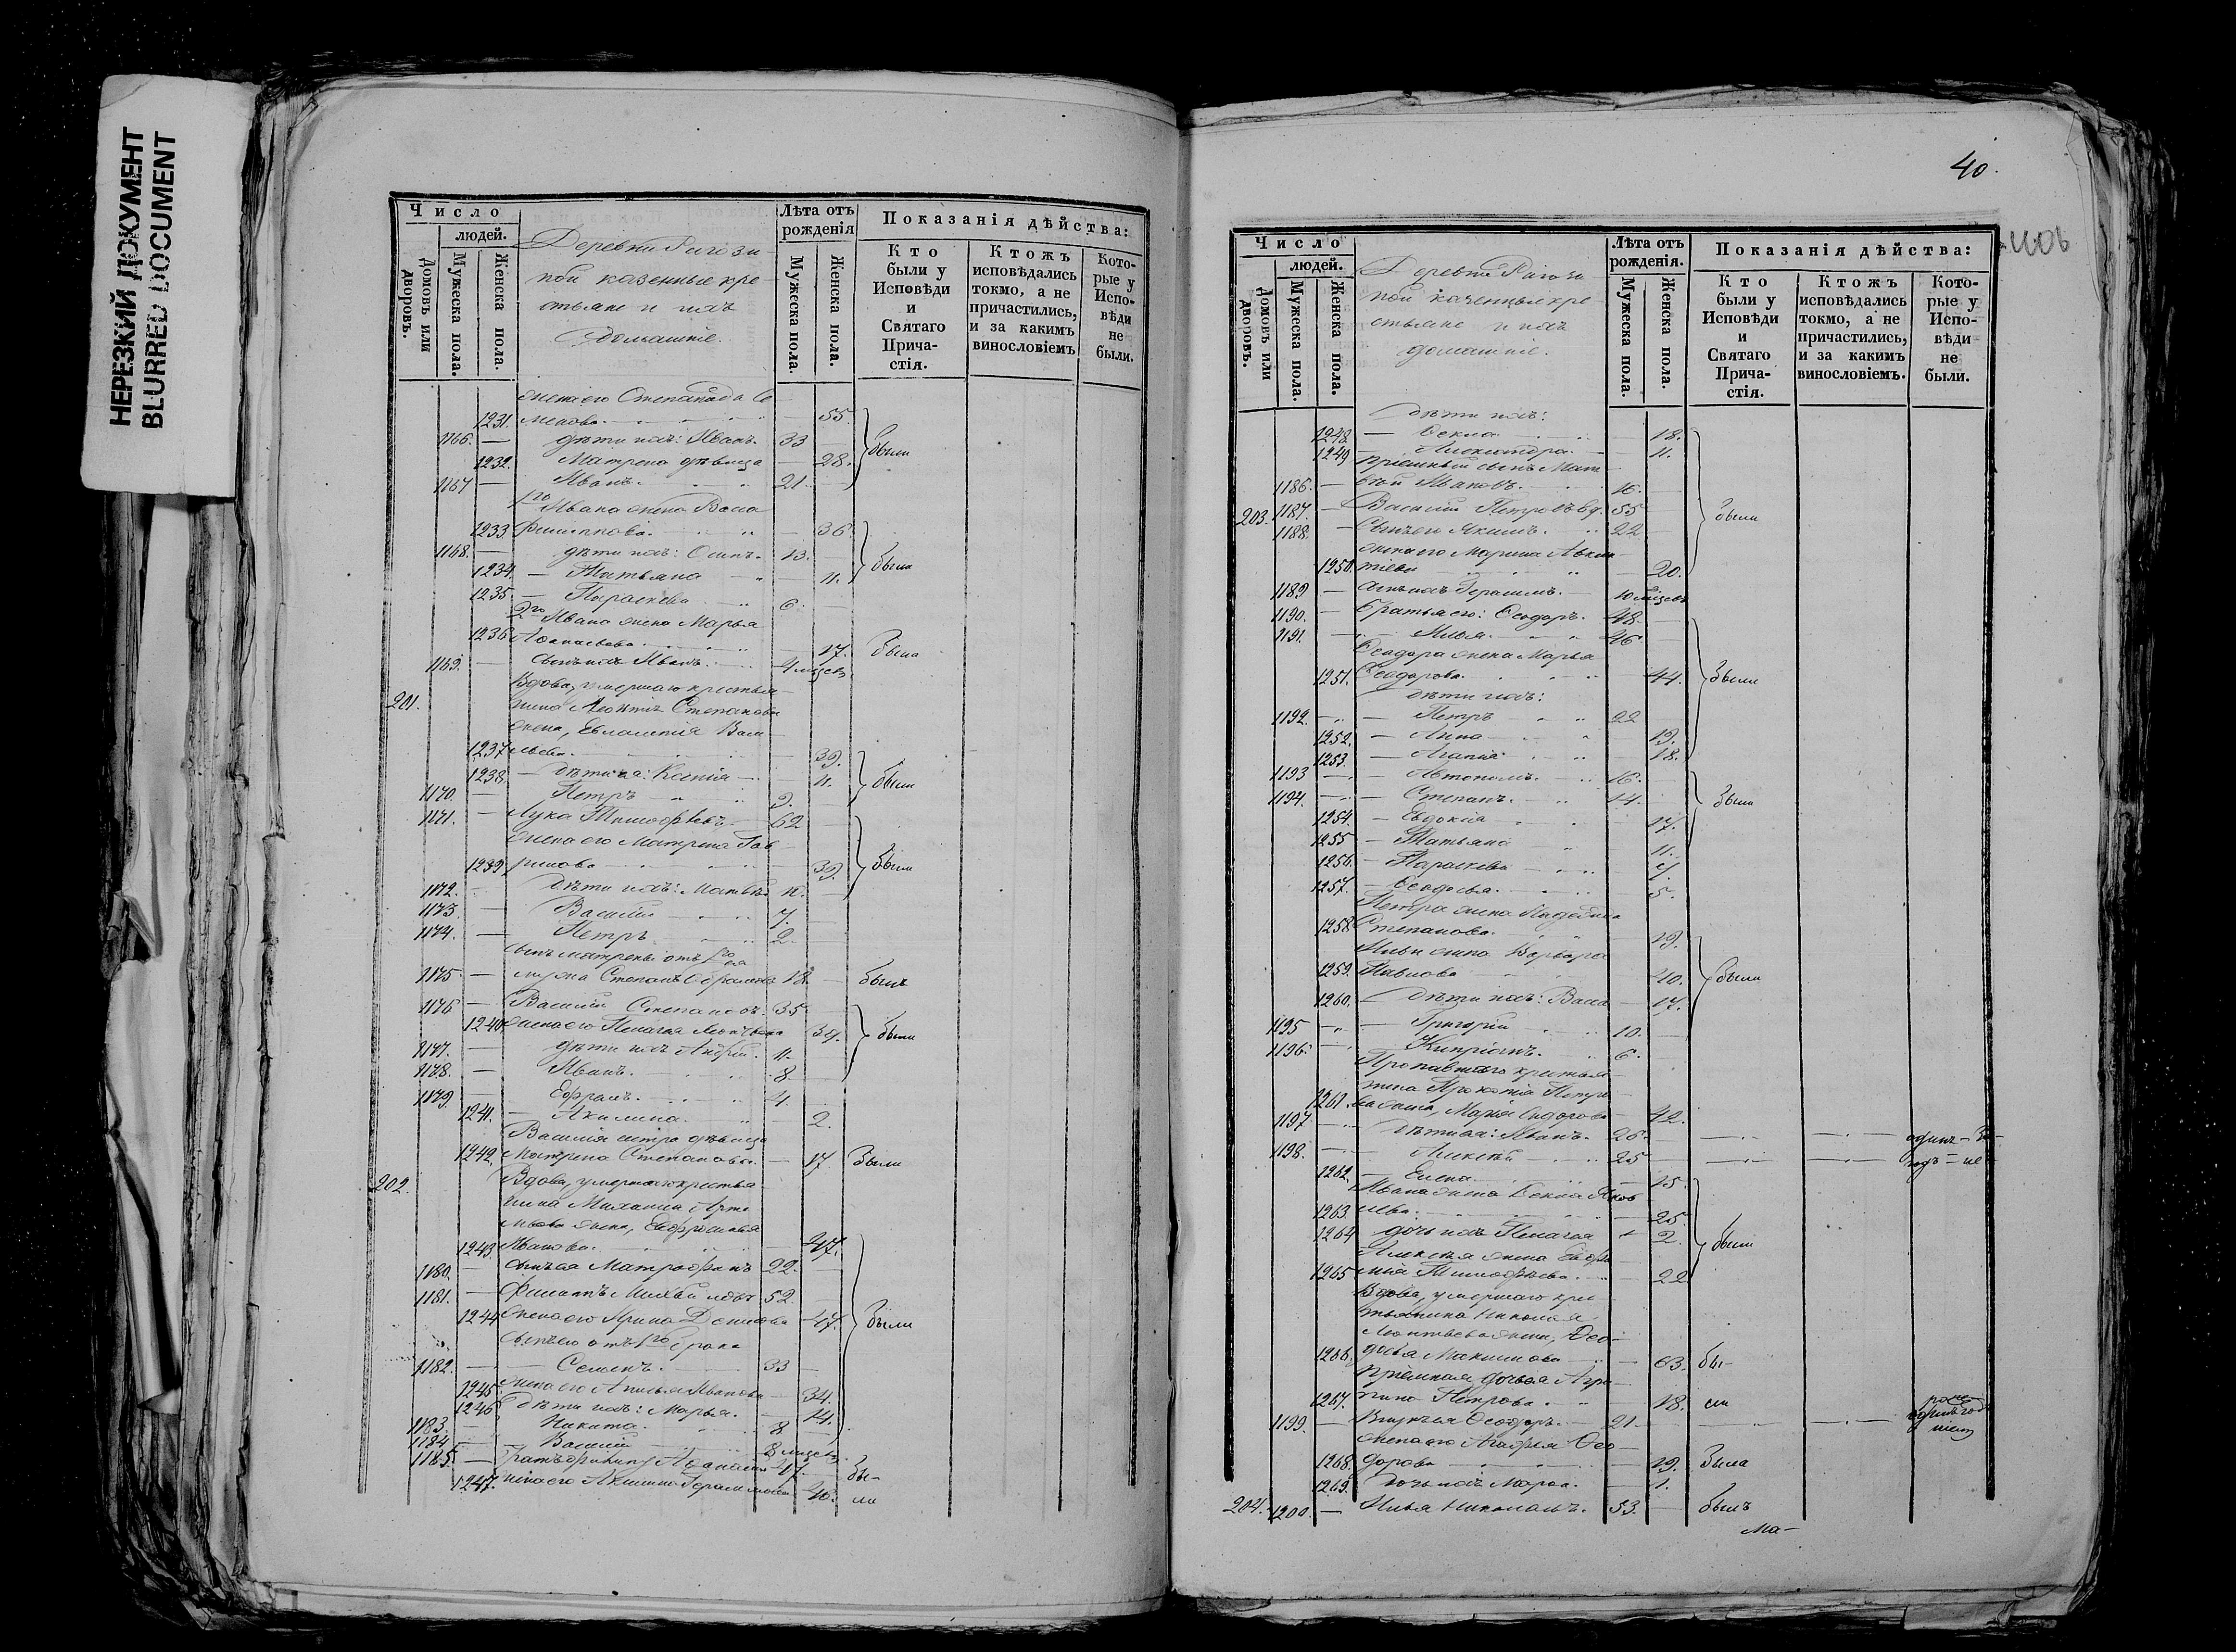 НЕРЕЗКИЙ ДОКУМЕНТ
BLURRED DOCUMENT
Число
людей.
Домовъ или дворовъ.
Мужеска пола.
Женска пола.
Деревни Рагози-
ной казенные кре-
стьяне и ихъ
домашніе.
Лѣта отъ рожденія
Мужеска пола.
Женска пола.
Показанія дѣйства:
Кто были у Исповѣди и Святаго Прича-стія.
Ктожъ исповѣдались токмо, а не причастились, и за какимъ винословіемъ
Кото-рые у Испо-вѣди не были.
жена его Степанида Се
1231. 55.
1166. — дѣти ихъ: Иванъ. 33 были
1232. Матрена дѣвица — 28.
1167 — Иванъ. 21.
1го Ивана жена Васса
1233 Филиппова. — 36.
1168. — дѣти ихъ: Осипъ. 13. были
1234. — Татьяна — 11.
1235. — Параскева 6.
2го Ивана жена Марья
1236 — 17. была
1169. — сынъ ихъ Иванъ. 4 мѣсец.
201. Вдова, умершаго крестья-
нина Леонтія Степанова
жена, Евлампія Васи-
1237 льева. — 39.
1238. — дѣти ея: Ксенія — 11. были
1170. — Петръ 9.
1171. — Лука Тимофѣевъ 62
жена его Матрена Гав
1239 рилова 39. были
1172. — дѣти ихъ: Матвѣй
1173. — Василій 7.
1174. — Петръ 2.
сынъ Матрены отъ 1го
1175 — мужа Степанъ 18. — былъ
1176 — Василій Степановъ. 35
1240 жена его Пелагея 39. были
1177. — дѣти ихъ Андрей. 11.
1178. — Иванъ. 8
1179. — Ефремъ. 4.
1241. — Акилина. 2.
Василія сестра дѣвица
1242. Матрена Степанова. — 17. были
202. Вдова, умершаго крестья
нина Михаила Арте
мьева жена, Евфросинья
1243. Иванова. — 47.
1180. — сынъ ея Митрофанъ 22. —
1181. — Филатъ Михайловъ 52
1244 жена его Арина Денисова 47. были
сынъ его отъ 1го брака
1182. — Семенъ. 33 —
1245 жена его Анисья Иванова — 34.
1246 дѣти ихъ: Марья. — 14.
1183. — Никита. 8
1184 — Василій 8 мѣсец.
1185. — 47. бы-
1247. жена его 46. ли
40.
Число
людей.
Домовъ или дворовъ.
Мужеска пола.
Женска пола.
Деревни Рагози
ной казенные кре-
стьяне и ихъ
домашніе.
Лѣта отъ рожденія.
Мужеска пола.
Женска пола.
Показанія дѣйства:
Кто были у Исповѣди и Святаго Прича-стія.
Ктожъ исповѣдались токмо, а не причастились, и за какимъ винословіемъ.
Кото-рые у Испо-вѣди не были.
дѣти ихъ:
1248 — Фекла — 18.
1249 — Александра. — 11.
пріемный сынъ Мат-
1186. — вѣй Ивановъ. 16. —
203. 1187. — Василій Петровъ вд. 55 были
1188. — Сынъ его Якимъ. 22
жена его Марина
1250. — 20.
1189 — сынъ ихъ Герасимъ. 10 мѣсец.
1190. — братья его: Ѳеодоръ. 48.
1191. — Илья. 46
Ѳеодора жена Марья
1251. Ѳеодорова. 44. были
дѣти ихъ:
1192. — Петръ 22
1252. — Анна 19.
1253. — Агапія 18.
1193 — Автономъ. 16.
1194. — Степанъ. 14. были
1254. — Евдокія 17.
1255 — Татьяна 11.
1256. — Параскева 7
1257. — Ѳеодосья. 5.
Петра жена
1258 Степанова. 19.
Ильи жена Варвара
1259. Павлова 40. были
1260. — дѣти ихъ: Васса — 17.
1195 — Григорій 10.
1196. — Кипріанъ. 6.
крестья-
нина Прокопія Петро
1261. ва жена, Марія Сидорова 42.
1197 — дѣти ея: Иванъ. 26. одинъ
1198. — Алексѣй 25
1262. — Елена 15.
Ивана жена Фекла Яков
1263. лева. 25.
1264 дочь ихъ Пелагея 2. были
Алексѣя жена Евфи
1265 мія Тимофѣева. 22
Вдова, умершаго кре-
стьянина Николая
Леонтьева жена, Ѳео-
1266. досья Максимова — 63. бы-
пріемная дочь ея Агри-
1267. пина Петрова. 18. ли
1199. — Внукъ ея Ѳеодоръ. 21.
жена его Агафья Ѳео-
1268. дорова 19. была
1269. дочь ихъ Марѳа. — 1.
204. 1200. — Илья Николаевъ. 53. былъ
Ма-